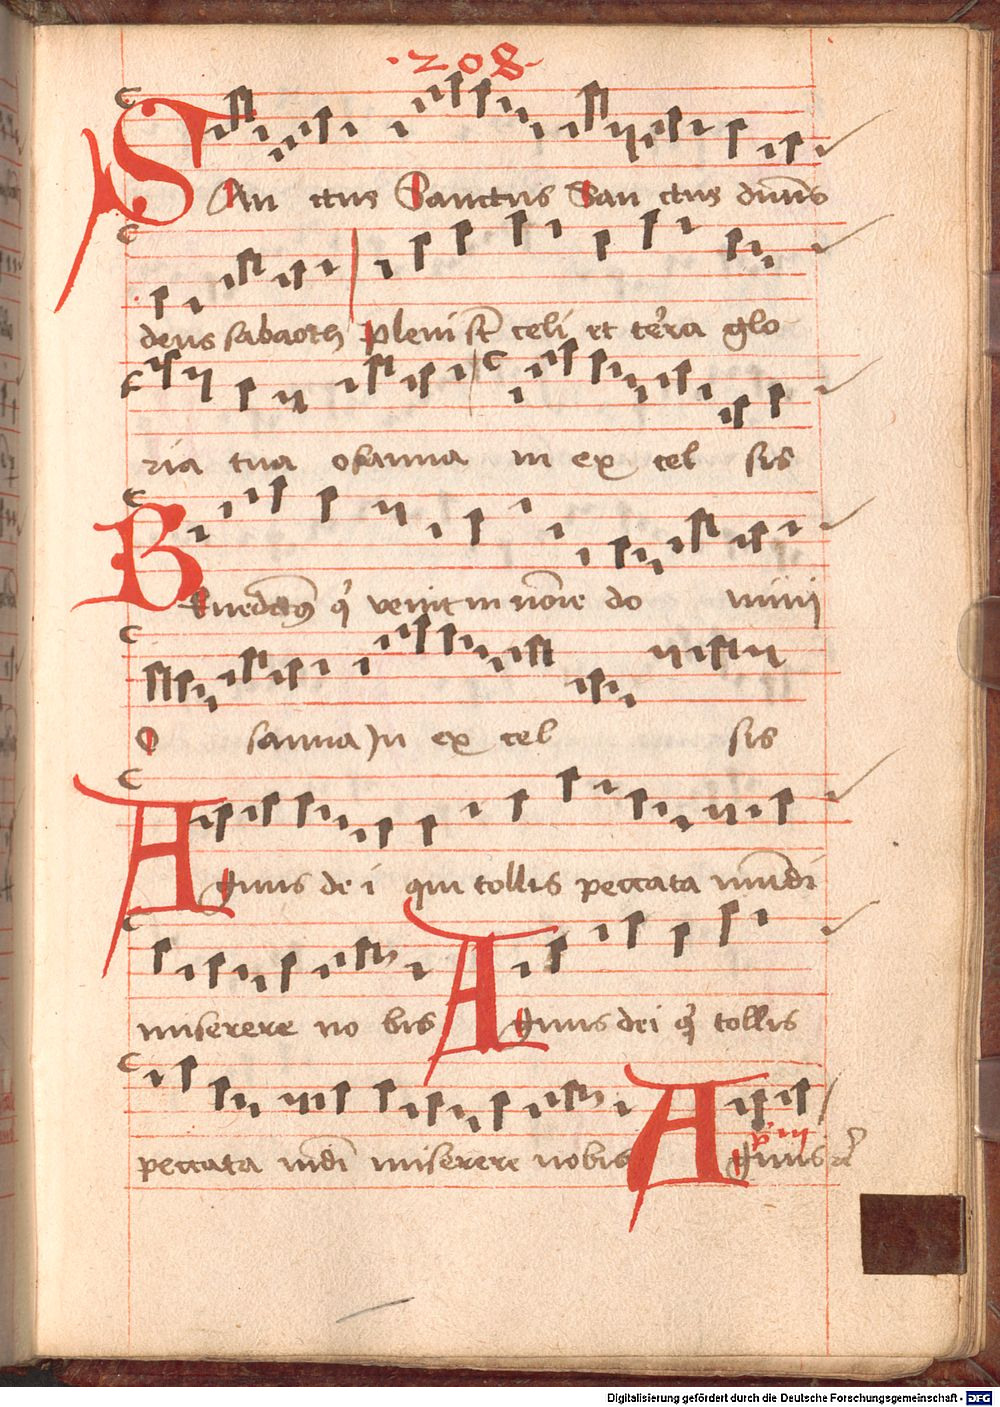 ·208·
SAn ctus Sanctus San ctus dnns
deus sabaoth pleni st celi et terra glo
ria tua osanna in ex cel sis
Benedctus q venit in noie do mini
O sanna In ex cel sis
Agnus de i qui tollis peccata mundi
miserere no bis Agnus dei q tollis
peccata mdi miserere nobis Agnus
Digitalisierung gefördert durch die Deutsche Forschungsgemeinschaft - DFG